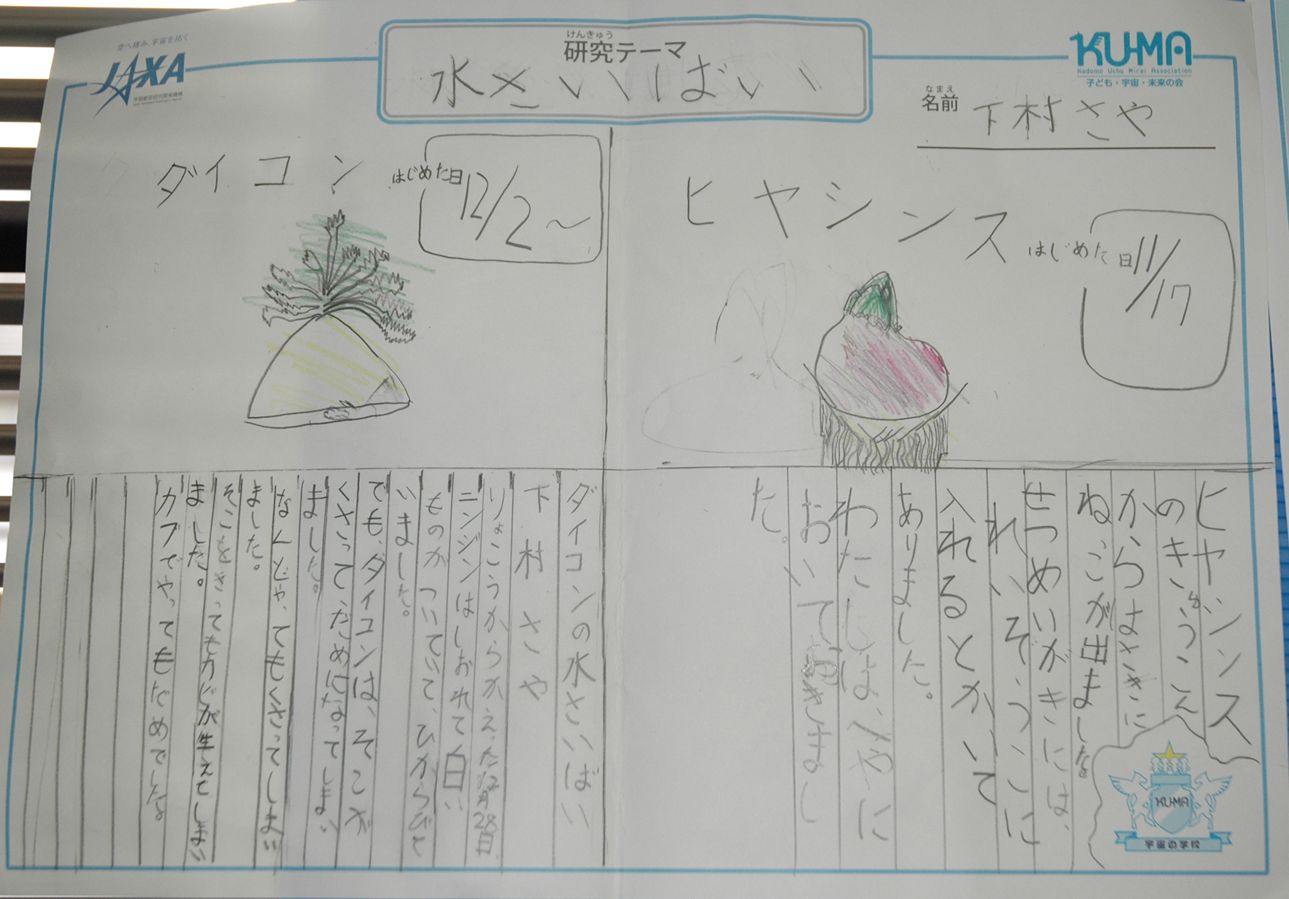 空へ挑み、宇宙を拓く
JAXA
けんきゅう
研究テーマ
水さいいばい
KU-MA
Kodomo Uchu Mirai Association
子ども・宇宙・未来の会
なまえ
名前
下村さや
ヒヤシンス
はじめた日
11/17
ヒヤシンス
のきゅうこん
からはさきに
ねっこが出ました。
せつめいがきには、
れいぞうこに
入れるとかいて
ありました。
わたしは、へやに
おいて
おきまし
た。
ダイコン
はじめた日
12/2~
ダイコンの水さいばい
下村さや
りょこうからかえった12月28日、
ニンジンはしおれて白い
ものがついていて、ひからびて
いました。
でも、ダイコンは、そこが
くさってだめになってしまい
ました。
なんどやってもくさってしまい
ました。
そこ
ってもカビが生えてしまい
ました。
カブでやってもだめでした。
KU-MA
宇宙の学校